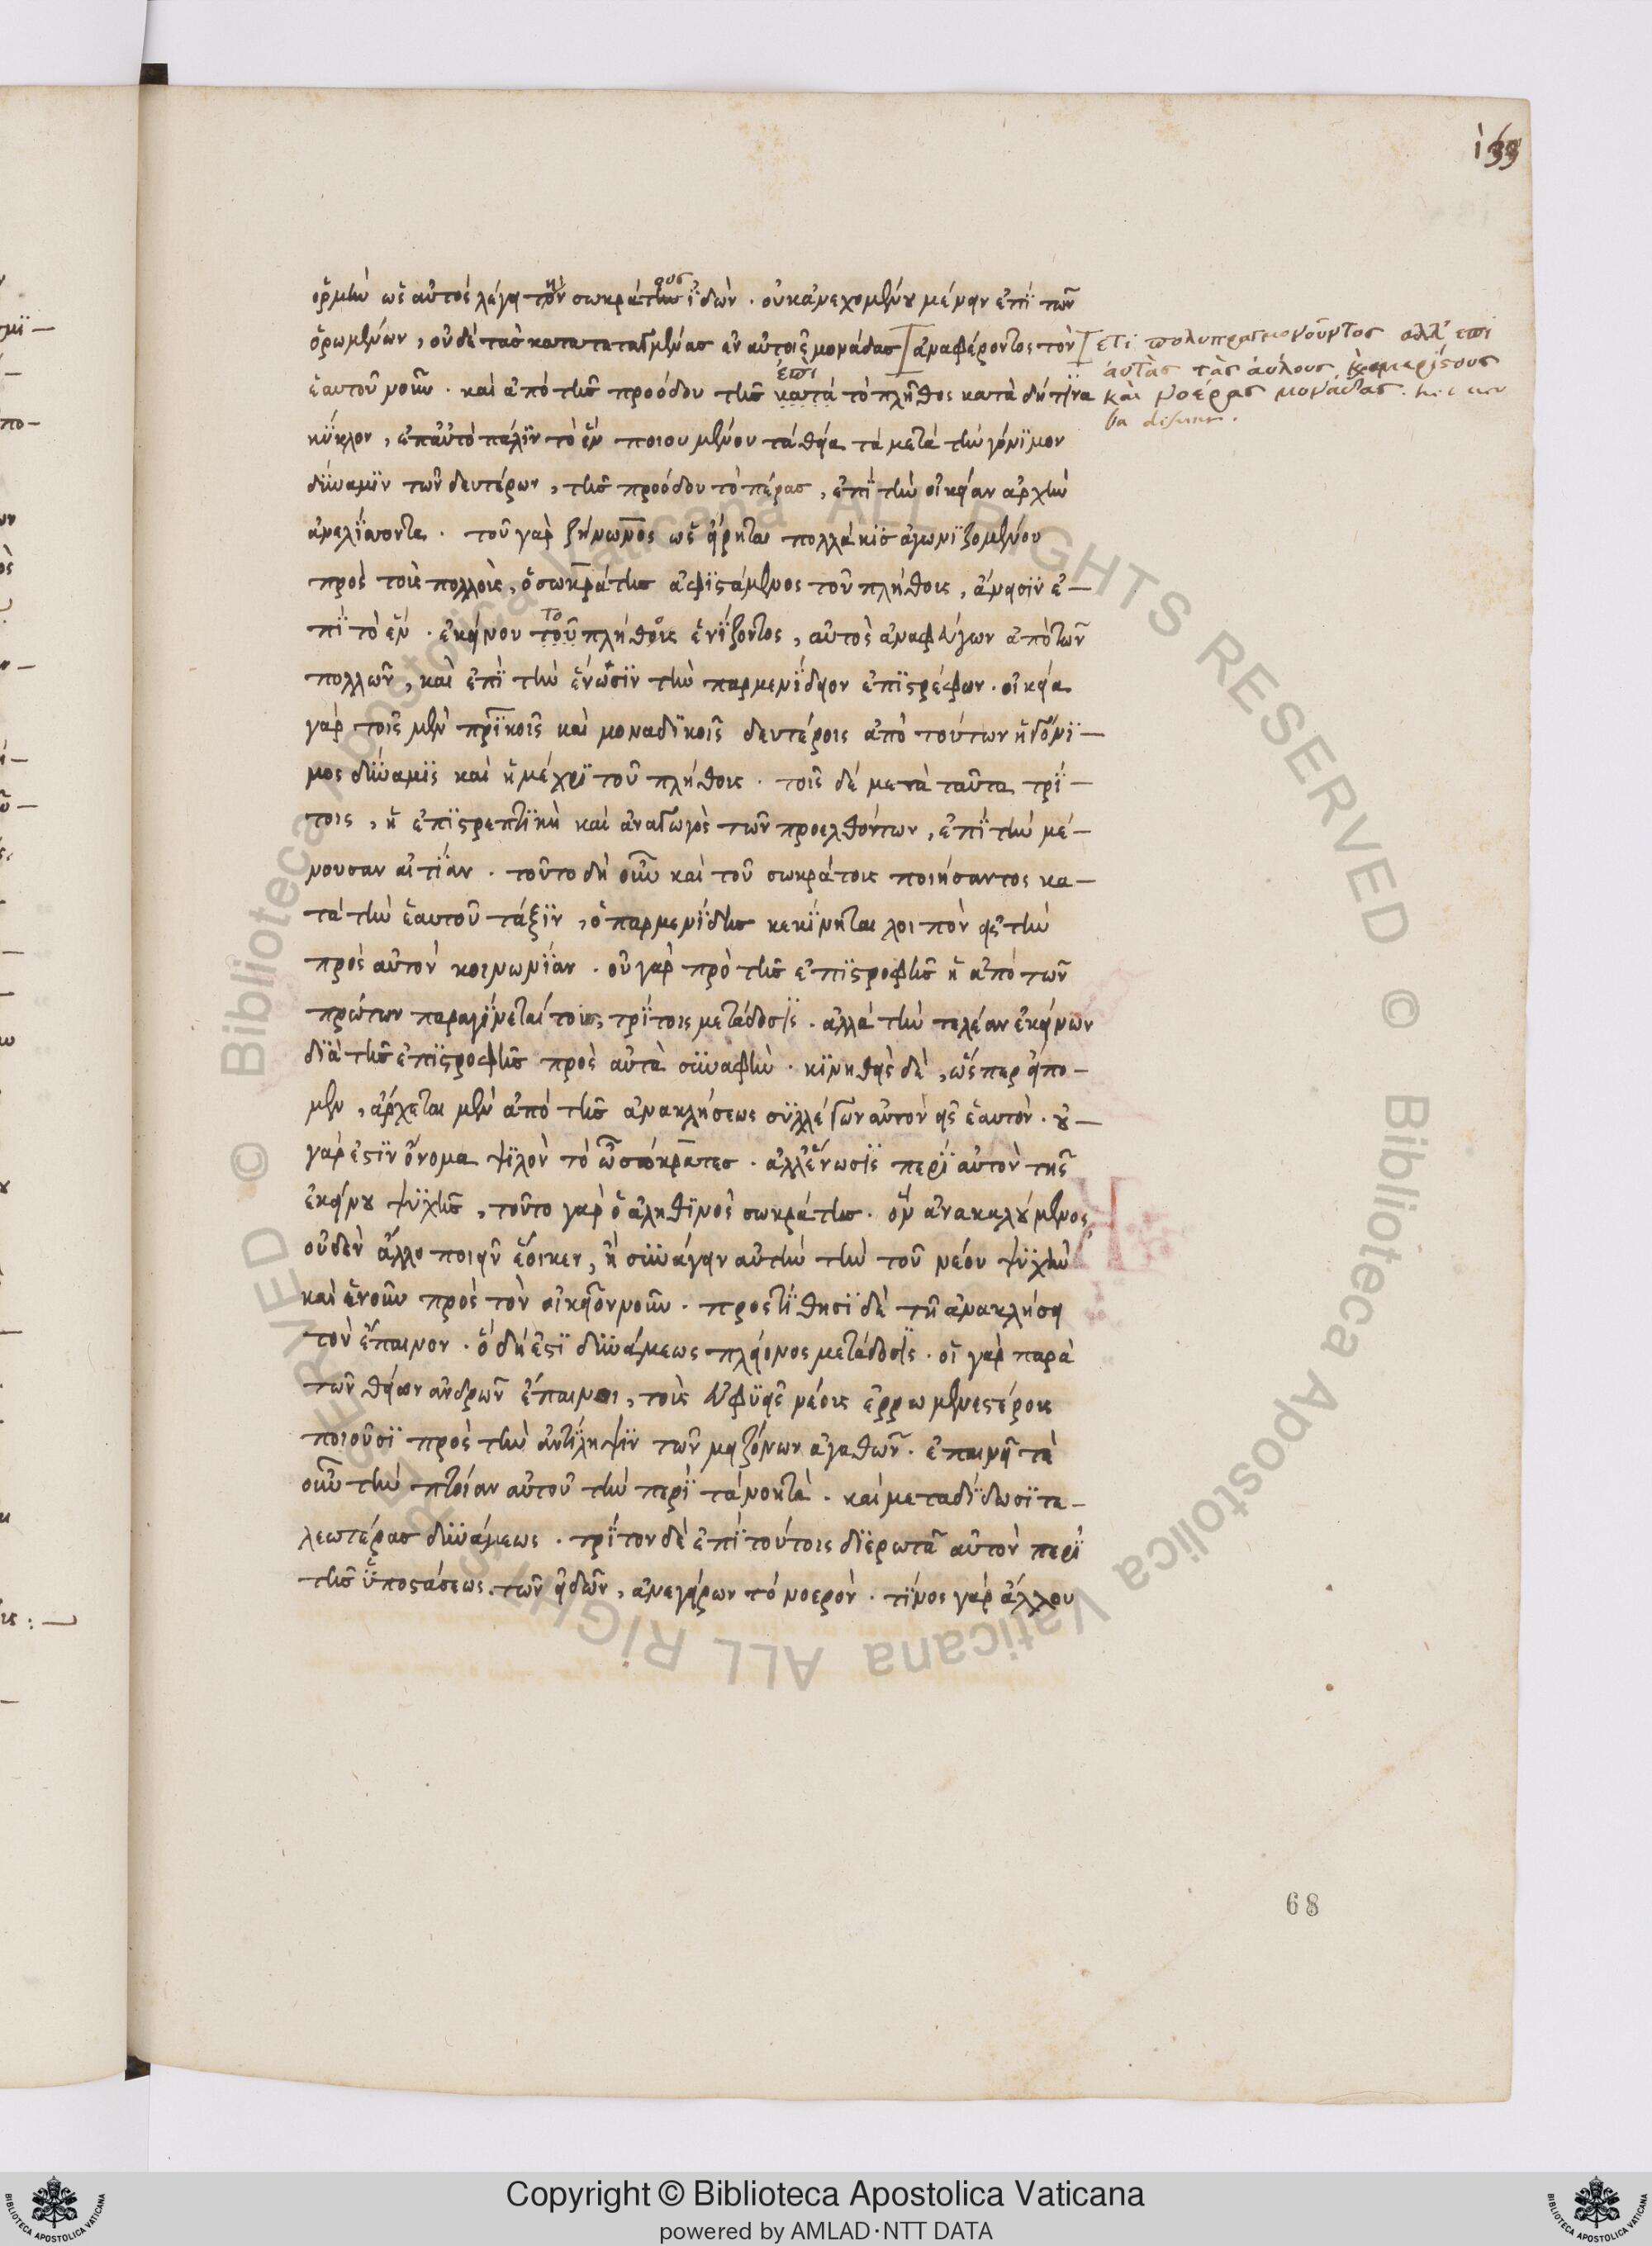 133
ὁρμὴν ὡς αὐτὸς λέγει τὸν σωκράτην ἰδὼν · οὐκ ἀνεχομένου μένειν ἐπὶ τῶν
ους
ὁρωμένων, οὐδὲ τὰσ κατατεταγμένασ ἐν αὐτοῖς μονάδασ ἀναφέροντος τὸν
ἐπὶ
ἑαυτοῦ νοῦν · καὶ ἀπὸ τῆσ προόδου τῆσ κατὰ τὸ πλῆθος κατὰ δή τινα
κύκλον, ἐπ αὐτὸ πάλιν τὸ ἓν ποιουμένου τὰ θεῖα τὰ μετὰ τὴν γόνιμον
δύναμιν τῶν δευτέρων, τῆσ προόδου τὸ πέρασ, ἐπὶ τὴν οἰκείαν ἀρχὴν
ἀνελίττοντα · τοῦ γὰρ ζήνωνος ὡς εἴρηται πολλάκισ ἀγωνιζομένου
πρὸς τοὺς πολλοὺς, ὁ σωκράτησ ἀφιστάμενος τοῦ πλήθους, ἄνεισιν ἐ–
πὶ τὸ ἕν · ἐκείνου τοῦ πλήθους ἑνίζοντος, αὐτὸς ἀναφεύγων ἀπὸ τῶν
το
πολλῶν, καὶ ἐπὶ τὴν ἕνωσιν τὴν παρμενίδειον ἐπιστρέφων · οἰκεία
γὰρ τοῖς μὲν πρικοῖς καὶ μοναδικοῖς δευτέροις ἀπὸ τούτων ἡ γόνι–
μος δύναμις καὶ ἡ μέχρι τοῦ πλήθους · τοῖς δὲ μετὰ ταῦτα τρί–
τοις, ἡ ἐπιστρεπτικὴ καὶ ἀναγωγὸς τῶν προελθόντων, ἐπὶ τὴν μέ–
νουσαν αἰτίαν · τοῦτο δὴ οὖν καὶ τοῦ σωκράτους ποιήσαντος κα–
τὰ τὴν ἑαυτοῦ τάξιν, ὁ παρμενίδησ κεκίνηται λοιπὸν εἰς τὴν
πρὸς αὐτὸν κοινωνίαν · οὐ γὰρ πρὸ τῆσ ἐπιστροφῆσ ἡ ἀπὸ τῶν
πρώτων παραγίνεται τοῖς τρίτοις μετάδοσις · ἀλλὰ τὴν τελέαν ἐκείνων
διὰ τῆσ ἐπιστροφῆσ πρὸς αὐτὰ συναφὴν · κινηθεὶς δὲ, ὥσπερ εἴπο–
μεν, ἄρχεται μὲν ἀπὸ τῆσ ἀνακλήσεως συλλέγων αὐτὸν εἰς ἑαυτὸν · οὐ–
γὰρ ἐστὶν ὄνομα ψιλὸν τὸ ὦ σώκρατεσ · ἀλλ ἕνωσις περὶ αὐτὸν τῆς
ἐκείνου ψυχῆσ, τοῦτο γὰρ ὁ ἀληθινὸς σωκράτησ · ὃν ἀνακαλούμενος
οὐδὲν ἄλλο ποιεῖν ἔοικεν, ἢ συνάγειν αὐτὴν τὴν τοῦ νέου ψυχὴν
καὶ ἑνοῦν πρὸς τὸν οἰκεῖον νοῦν · προστίθησι δὲ τῇ ἀνακλήσει
τὸν ἔπαινον · ὃ δή ἐστι δυνάμεως πλείονος μετάδοσις · οἱ γὰρ παρὰ
τῶν θείων ἀνδρῶν ἔπαινοι, τοὺς εὐφυεῖς νέους ἐρρωμενεστέρους
ποιοῦσι πρὸς τὴν ἀντίληψιν τῶν μειζόνων ἀγαθῶν · ἐπαινεῖ τὰ
οὖν τὴν πτοίαν αὐτοῦ τὴν περὶ τὰ νοητὰ · καὶ μεταδίδωσι τε–
λεωτέρασ δυνάμεως · τρίτον δὲ ἐπὶ τούτοις διερωτᾶ αὐτὸν περὶ
τῆσ ὑποστάσεως τῶν εἰδῶν, ἀνεγείρων τὸ νοερὸν · τίνος γὰρ ἄλλου
ετι πολυπραγμονοῦντος αλλ' επι
αυτὰς τὰς αύλους, καὶ αμερίστους
καὶ νοέρας μονάδας.
68
Copyright © Biblioteca Apostolica Vaticana
powered by AMLAD·NTT DATA